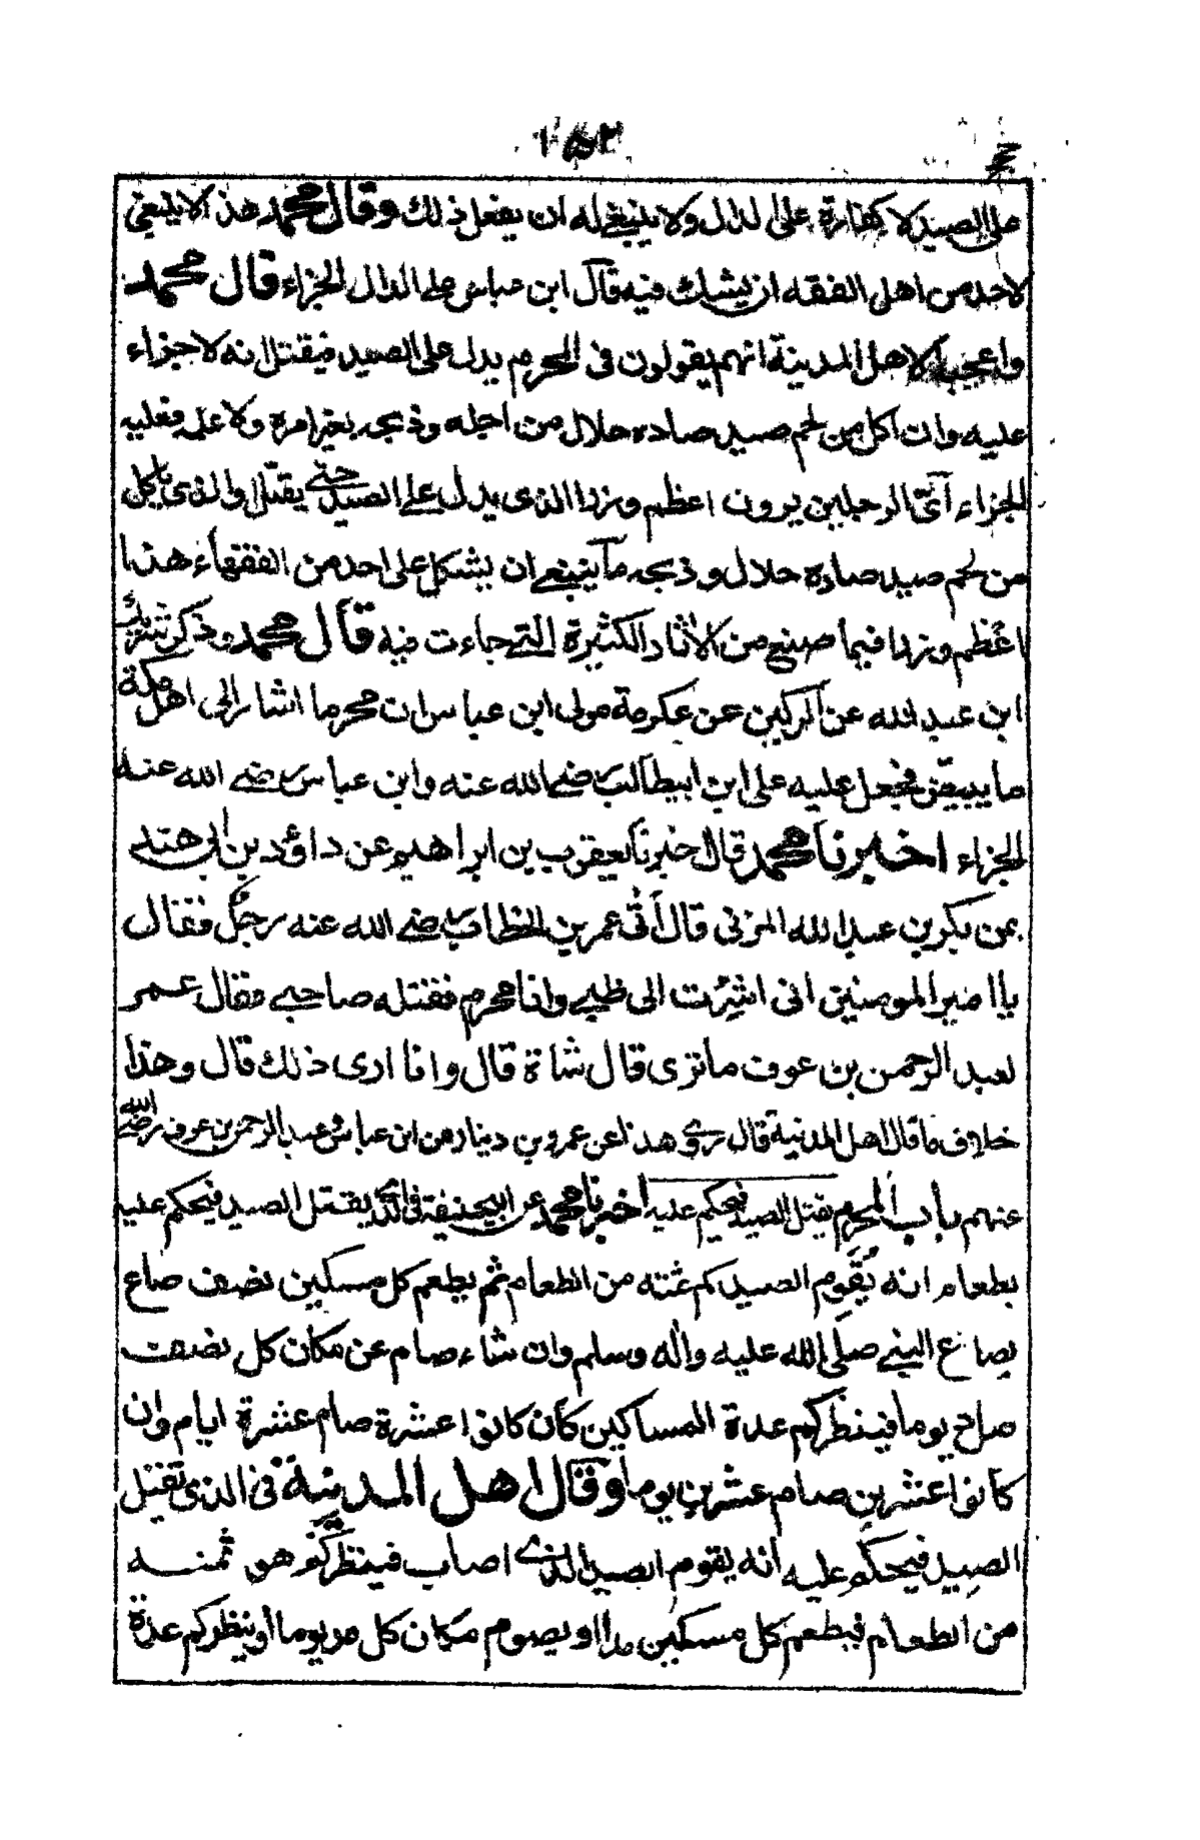 ١٥٢
على الصيد لا كفارة على الدال ولا ينبغي له ان يفعل ذلك وقال محمد هذا لا ينبغي
لاحد من اهل الفقه ان يشك فيه قال ابن عباس على الدال الجزاء قال محمد
واعجبا لاهل المدينة انهم يقولون في المحرم يدل على الصيد فيقتل انه لا جزاء
عليه وان اكل من لحم صيد صاده حلال من اجله وذبحه بغير امره ولا علمه فعليه
الجزاء اىّ الرجلين يرون اعظم وزرا الذى يدل على الصيد حتى يقتل او الذى ياكل
من لحم صيد صاده حلال وذبحه ما ينبغي ان يشكل على احد من الفقهاء هذا
اعظم وزرا فيما صنع من الآثار الكثيرة التي جاءت فيه قال محمد وذكر شريك
ابن عبد الله عن الركين عن عكرمة مولى ابن عباس ان محرما اشار الى اهل مكة
ما يبيض فجعل عليه على ابن ابيطالب رضي الله عنه وابن عباس رضي الله عنه
الجزاء اخبرنا محمد قال اخبرنا يعقوب بن ابراهيم عن داؤد بن ابي هند
عن بكر بن عبد الله المزنى قال أتى عمر بن الخطاب رضي الله عنه رجل فقال
يا امير المومنين انى اشرت الى ظبي وانا محرم فقتله صاحبي فقال عمر
لعبد الرحمن بن عوف ما ترى قال شاة قال وانا ارى ذلك قال وهذا
خلاف ما قال اهل المدينة قال روي هذا عن عمرو بن دينار عن ابن عباس وعبد الرحمن بن عوف رضي الله
عنهم باب المحرم يقتل الصيد فيحكم عليه اخبرنا محمد عن ابيحنيفة في الذي يقتل الصيد فيحكم عليه
بطعام انه يُقَوّم الصيد كم ثمنه من الطعام ثم يطعم كل مسكين نصف صاع
بصاع النبي صلى الله عليه واله وسلم وان شاء صام عن مكان كل نصف
صاع يوما فينظر كم عدة المساكين كأن كانوا عشرة صام عشرة ايام وان
كانوا عشرين صام عشرين يوما وقال اهل المدينة في الذى يقتل
الصيد فيحكم عليه انه يقوم الصيد الذي اصاب فينظر كم هو ثمنه
من الطعام فيطعم كل مسكين مدا او يصوم مكان كل مد يوما او ينظر كم عدة